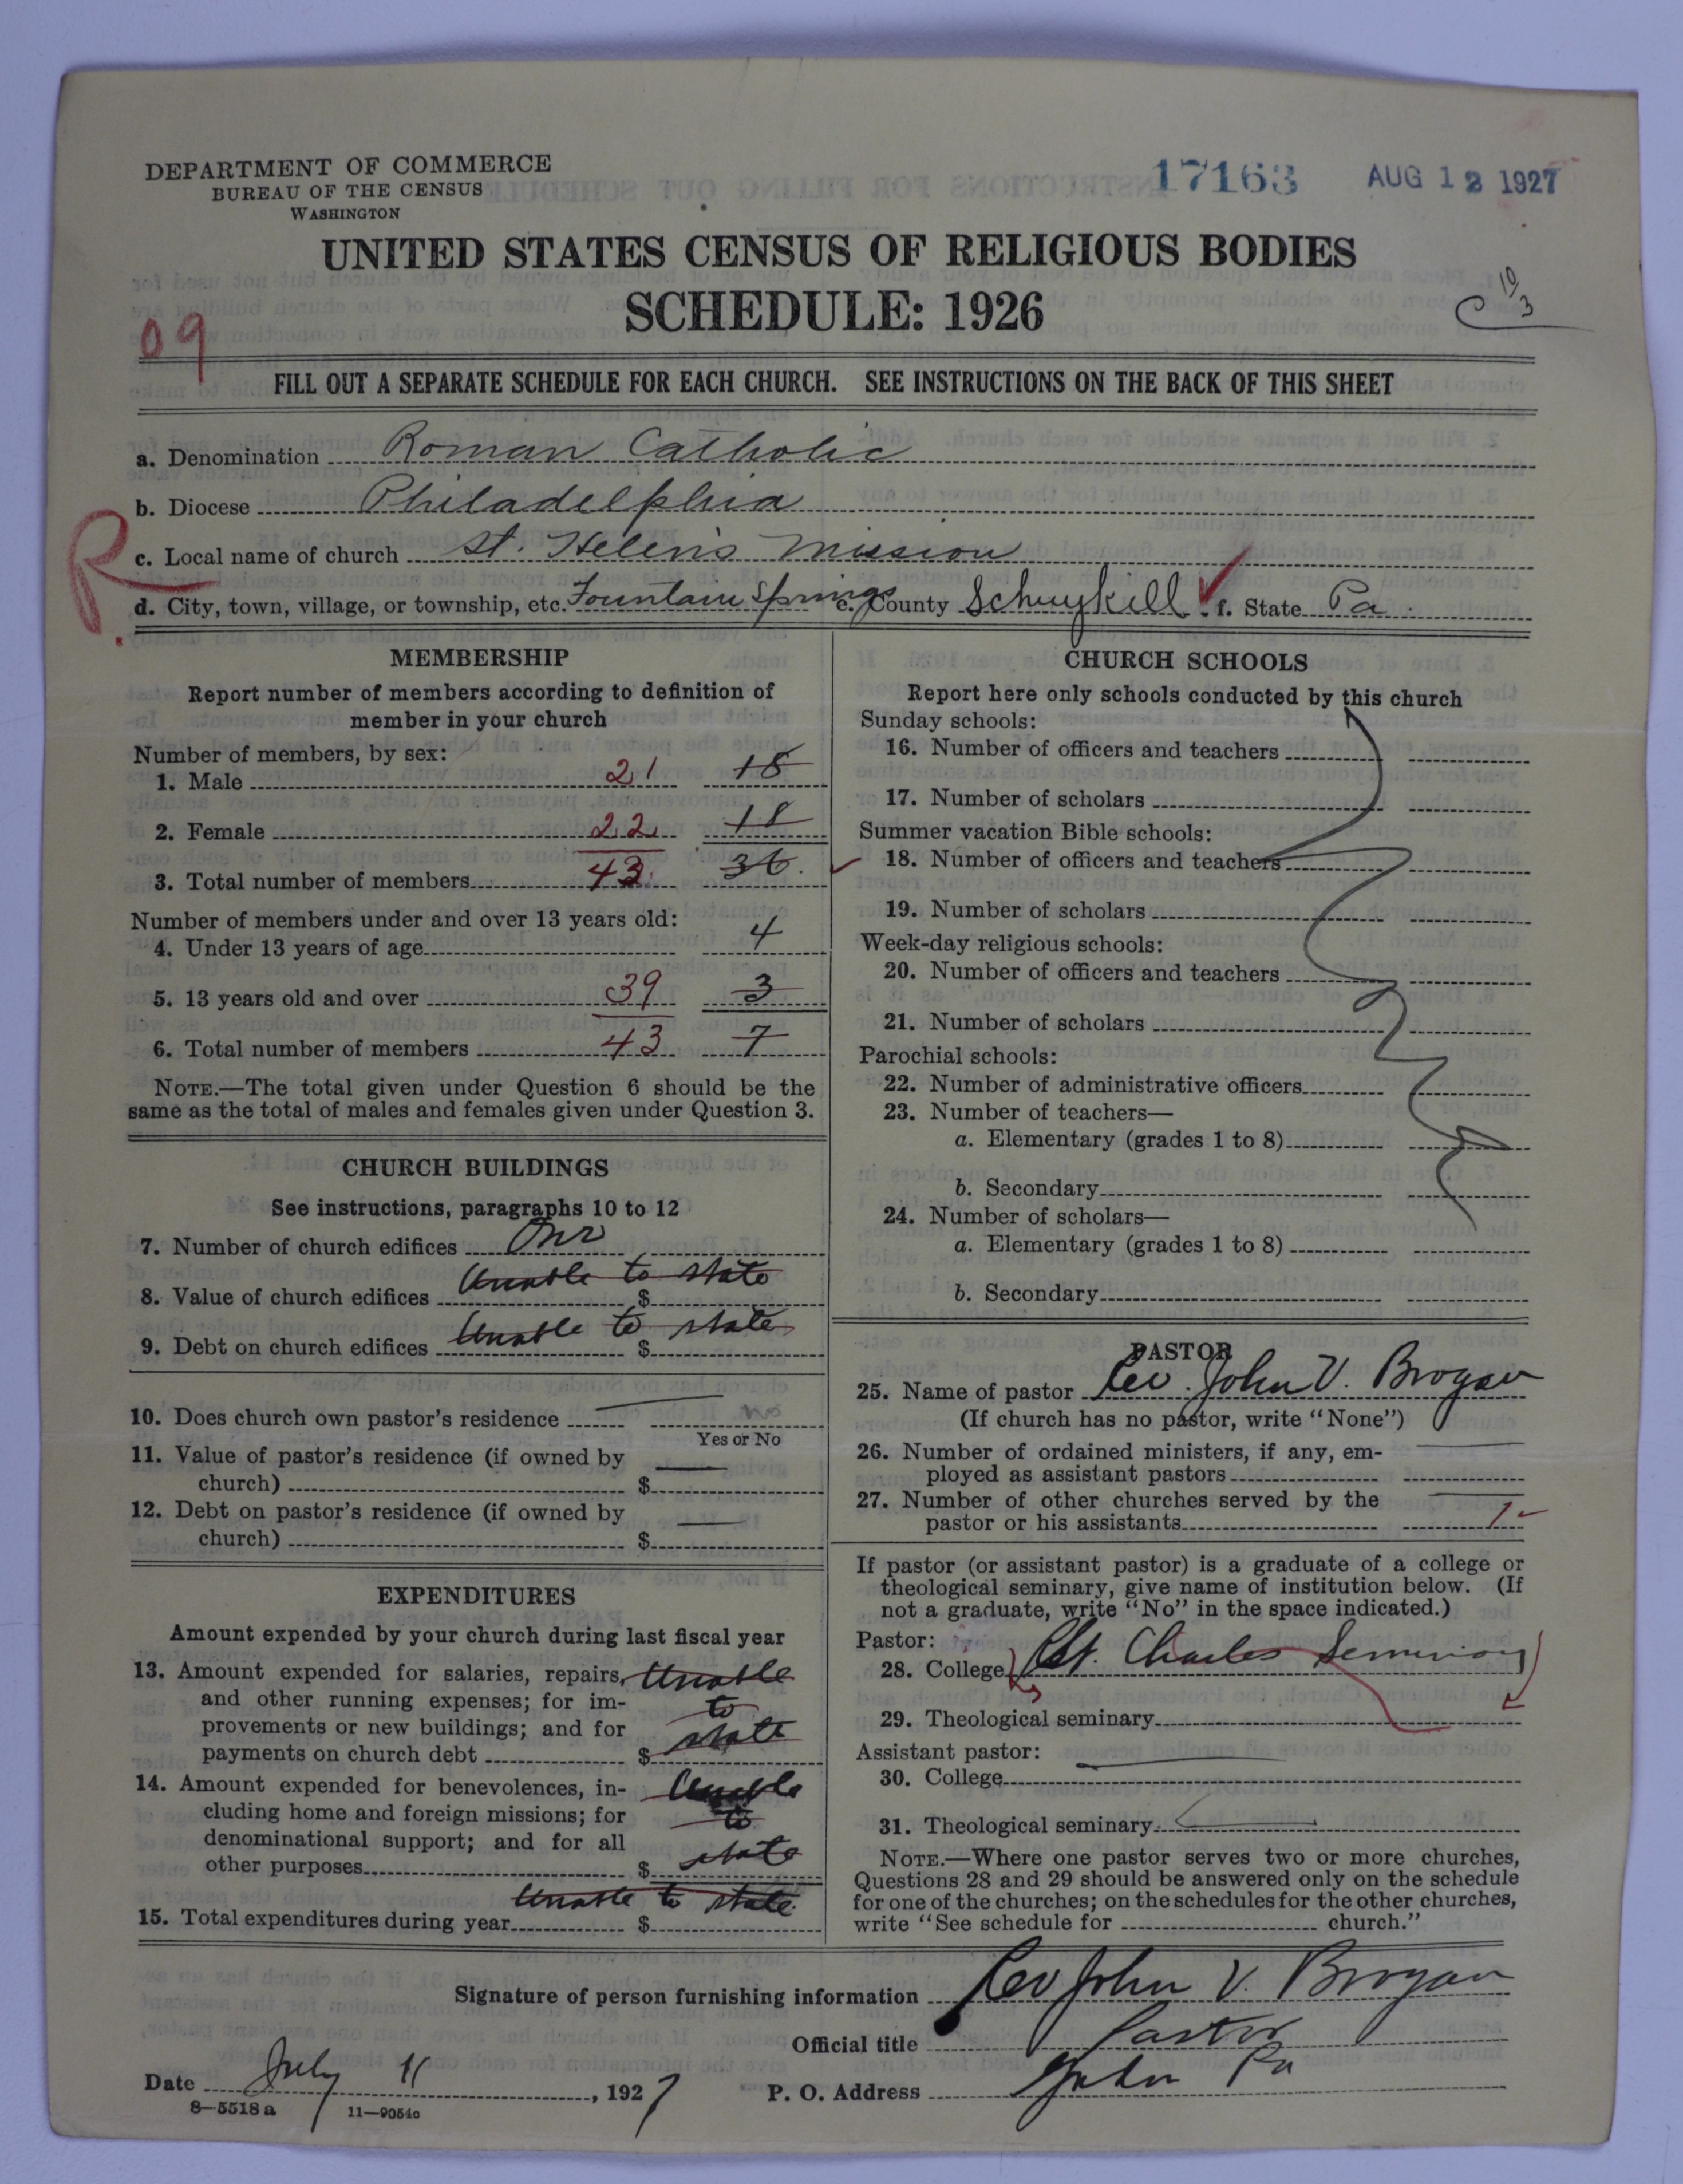 DEPARTMENT OF COMMERCE
BUREAU OF THE CENSUS
WASHINGTON
17163 AUG 12 1927
UNITED STATES CENSUS OF RELIGIOUS BODIES
SCHEDULE: 1926
C 10/3
09
FILL OUT A SEPARATE SCHEDULE FOR EACH CHURCH. SEE INSTRUCTIONS ON THE BACK OF THIS SHEET
a. Denomination Roman Catholic
b. Diocese Philadelphia
R.
c. Local name of church St. Helen's Mission
d. City, town, village, or township, etc. Fountain Springs e. County Schuykill f. State Pa.
MEMBERSHIP
Report number of members according to definition of
member in your church
Number of members, by sex:
1. Male 21 18
2. Female 22 18
3. Total number of members 43 36.
Number of members under and over 13 years old:
4. Under 13 years of age 4
5. 13 years old and over 39 3
6. Total number of members 43 7
NOTE.—The total given under Question 6 should be the
same as the total of males and females given under Question 3.
CHURCH BUILDINGS
See instructions, paragraphs 10 to 12
7. Number of church edifices One
8. Value of church edifices Unable to state $
9. Debt on church edifices Unable to state $
10. Does church own pastor's residence No
Yes or No
11. Value of pastor's residence (if owned by
church) $
12. Debt on pastor's residence (if owned by
church) $
EXPENDITURES
Amount expended by your church during last fiscal year
13. Amount expended for salaries, repairs, Unable
and other running expenses; for im- to
provements or new buildings; and for state
payments on church debt $
14. Amount expended for benevolences, in- Unable
cluding home and foreign missions; for to
denominational support; and for all
other purposes $ state
15. Total expenditures during year Unable to state. $
CHURCH SCHOOLS
Report here only schools conducted by this church
Sunday schools:
16. Number of officers and teachers
17. Number of scholars
Summer vacation Bible schools:
18. Number of officers and teachers
19. Number of scholars
Week-day religious schools:
20. Number of officers and teachers
21. Number of scholars
Parochial schools:
22. Number of administrative officers
23. Number of teachers—
a. Elementary (grades 1 to 8)
b. Secondary
24. Number of scholars—
a. Elementary (grades 1 to 8)
b. Secondary
PASTOR
25. Name of pastor Rev. John V. Brogan
(If church has no pastor, write "None")
26. Number of ordained ministers, if any, em-
ployed as assistant pastors
27. Number of other churches served by the
pastor or his assistants 1
If pastor (or assistant pastor) is a graduate of a college or
theological seminary, give name of institution below. (If
not a graduate, write "No" in the space indicated.)
Pastor:
28. College St. Charles Seminary
29. Theological seminary
Assistant pastor:
30. College
31. Theological seminary
NOTE.—Where one pastor serves two or more churches,
Questions 28 and 29 should be answered only on the schedule
for one of the churches; on the schedules for the other churches,
write "See schedule for church."
Signature of person furnishing information Rev John V. Brogan
Official title Pastor
Date July 11, 1927 P. O. Address Pa
8—5518a 11—9054c